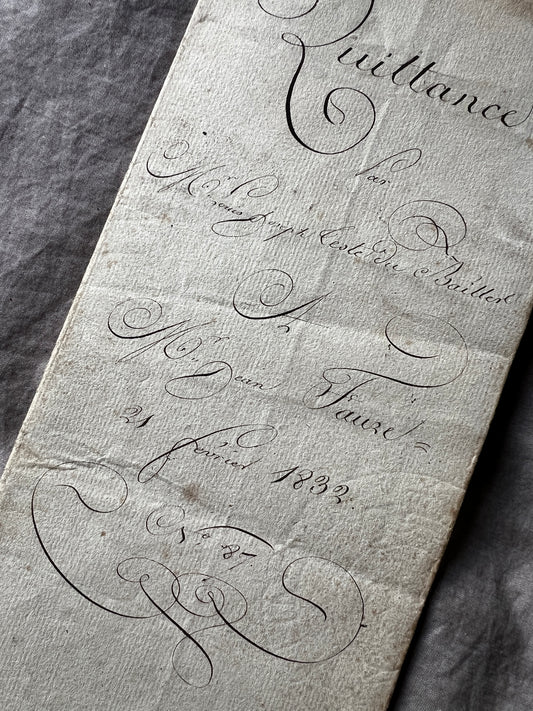 Quittance
Par
Mr. Louis Joseph Teste du Bailler
A
Mr. Jean Faure=
21 février 1832.
No. 87